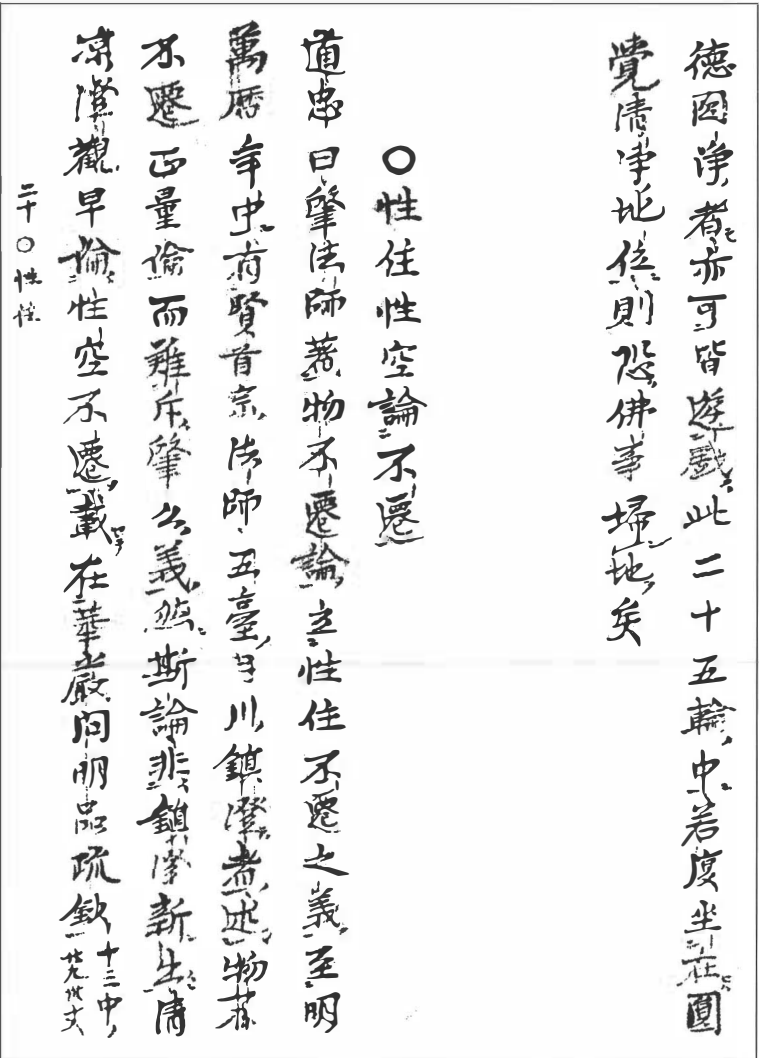 德圓淨者亦可皆遊戲此二十五輪中若度坐在圓
覺清淨地位則恐佛事埽地矣
○性住性空論不遷
道忠曰肇法師著物不遷論立性住不遷之義至明
萬曆年中有賢首宗法師五臺月川鎮澄者述物
不遷正量論而難斥肇公義然斯論非鎮澄新出清
涼澄觀早論性空不遷載在華嚴問明品疏鈔十三中
二十○性住